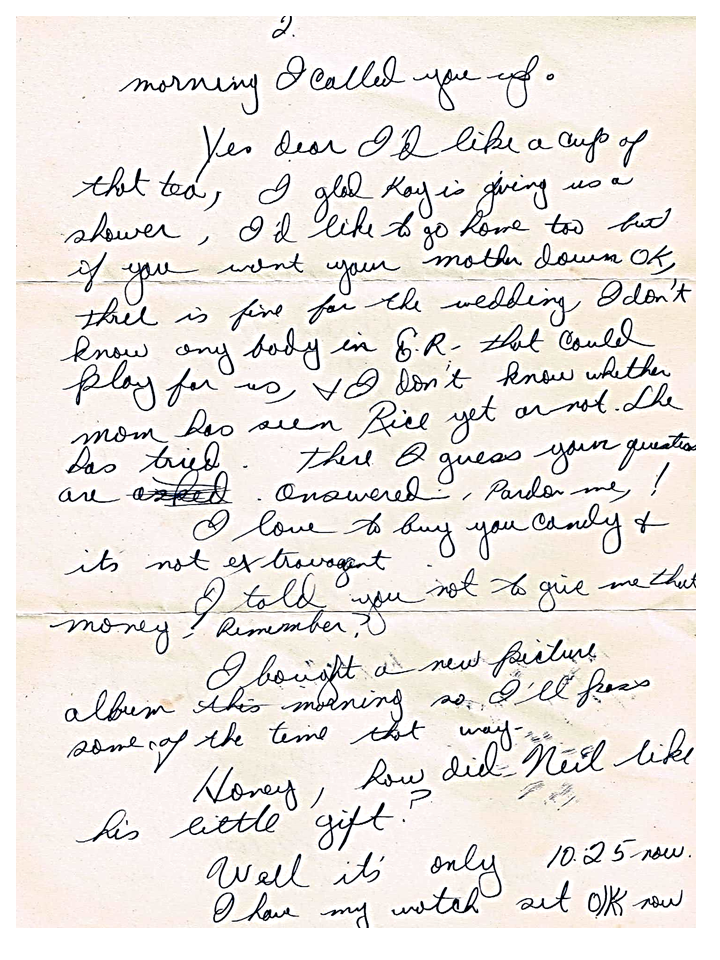 2.
morning I called you up.
Yes dear I'd like a cup of
that tea, I glad Kay is giving us a
shower, I'd like to go home too but
if you want your mother down OK,
three is fine for the wedding, I don't
know any body in E.R. that could
play for us, & I don't know whether
mom has seen Rice yet or not. She
has tried. There I guess your question
are asked. answered, Pardon me, !
I love to buy you candy &
it's not extravagant
I told you not to give me that
money! Remember?
I bought a new picture
album this morning so I'll pass
some of the time that way.
Honey, how did Neil like
his little gift?
Well it's only 10:25 now.
I have my watch set OK now